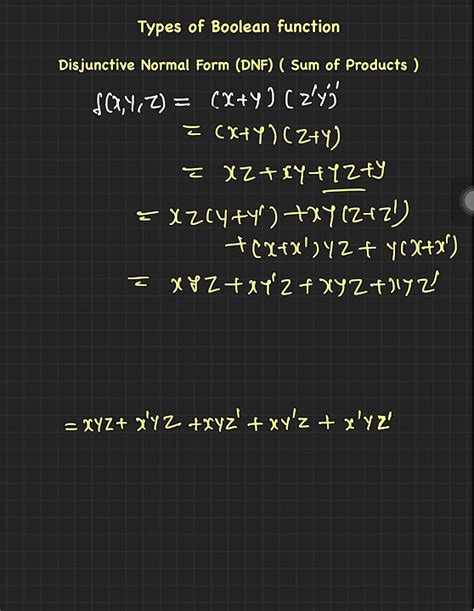 Types of Boolean function
Disjunctive Normal Form (DNF) ( Sum of Products )
f(x,y,z) = (x+y) (z'y')'
= (x+y) (z+y)
= xz + xy + yz + y
= xz(y+y') + xy(z+z')
+ (x+x')yz + y(x+x')
= xyz + xy'z + xyz + xyz'
= xyz + x'yz + xyz' + xy'z + x'yz'